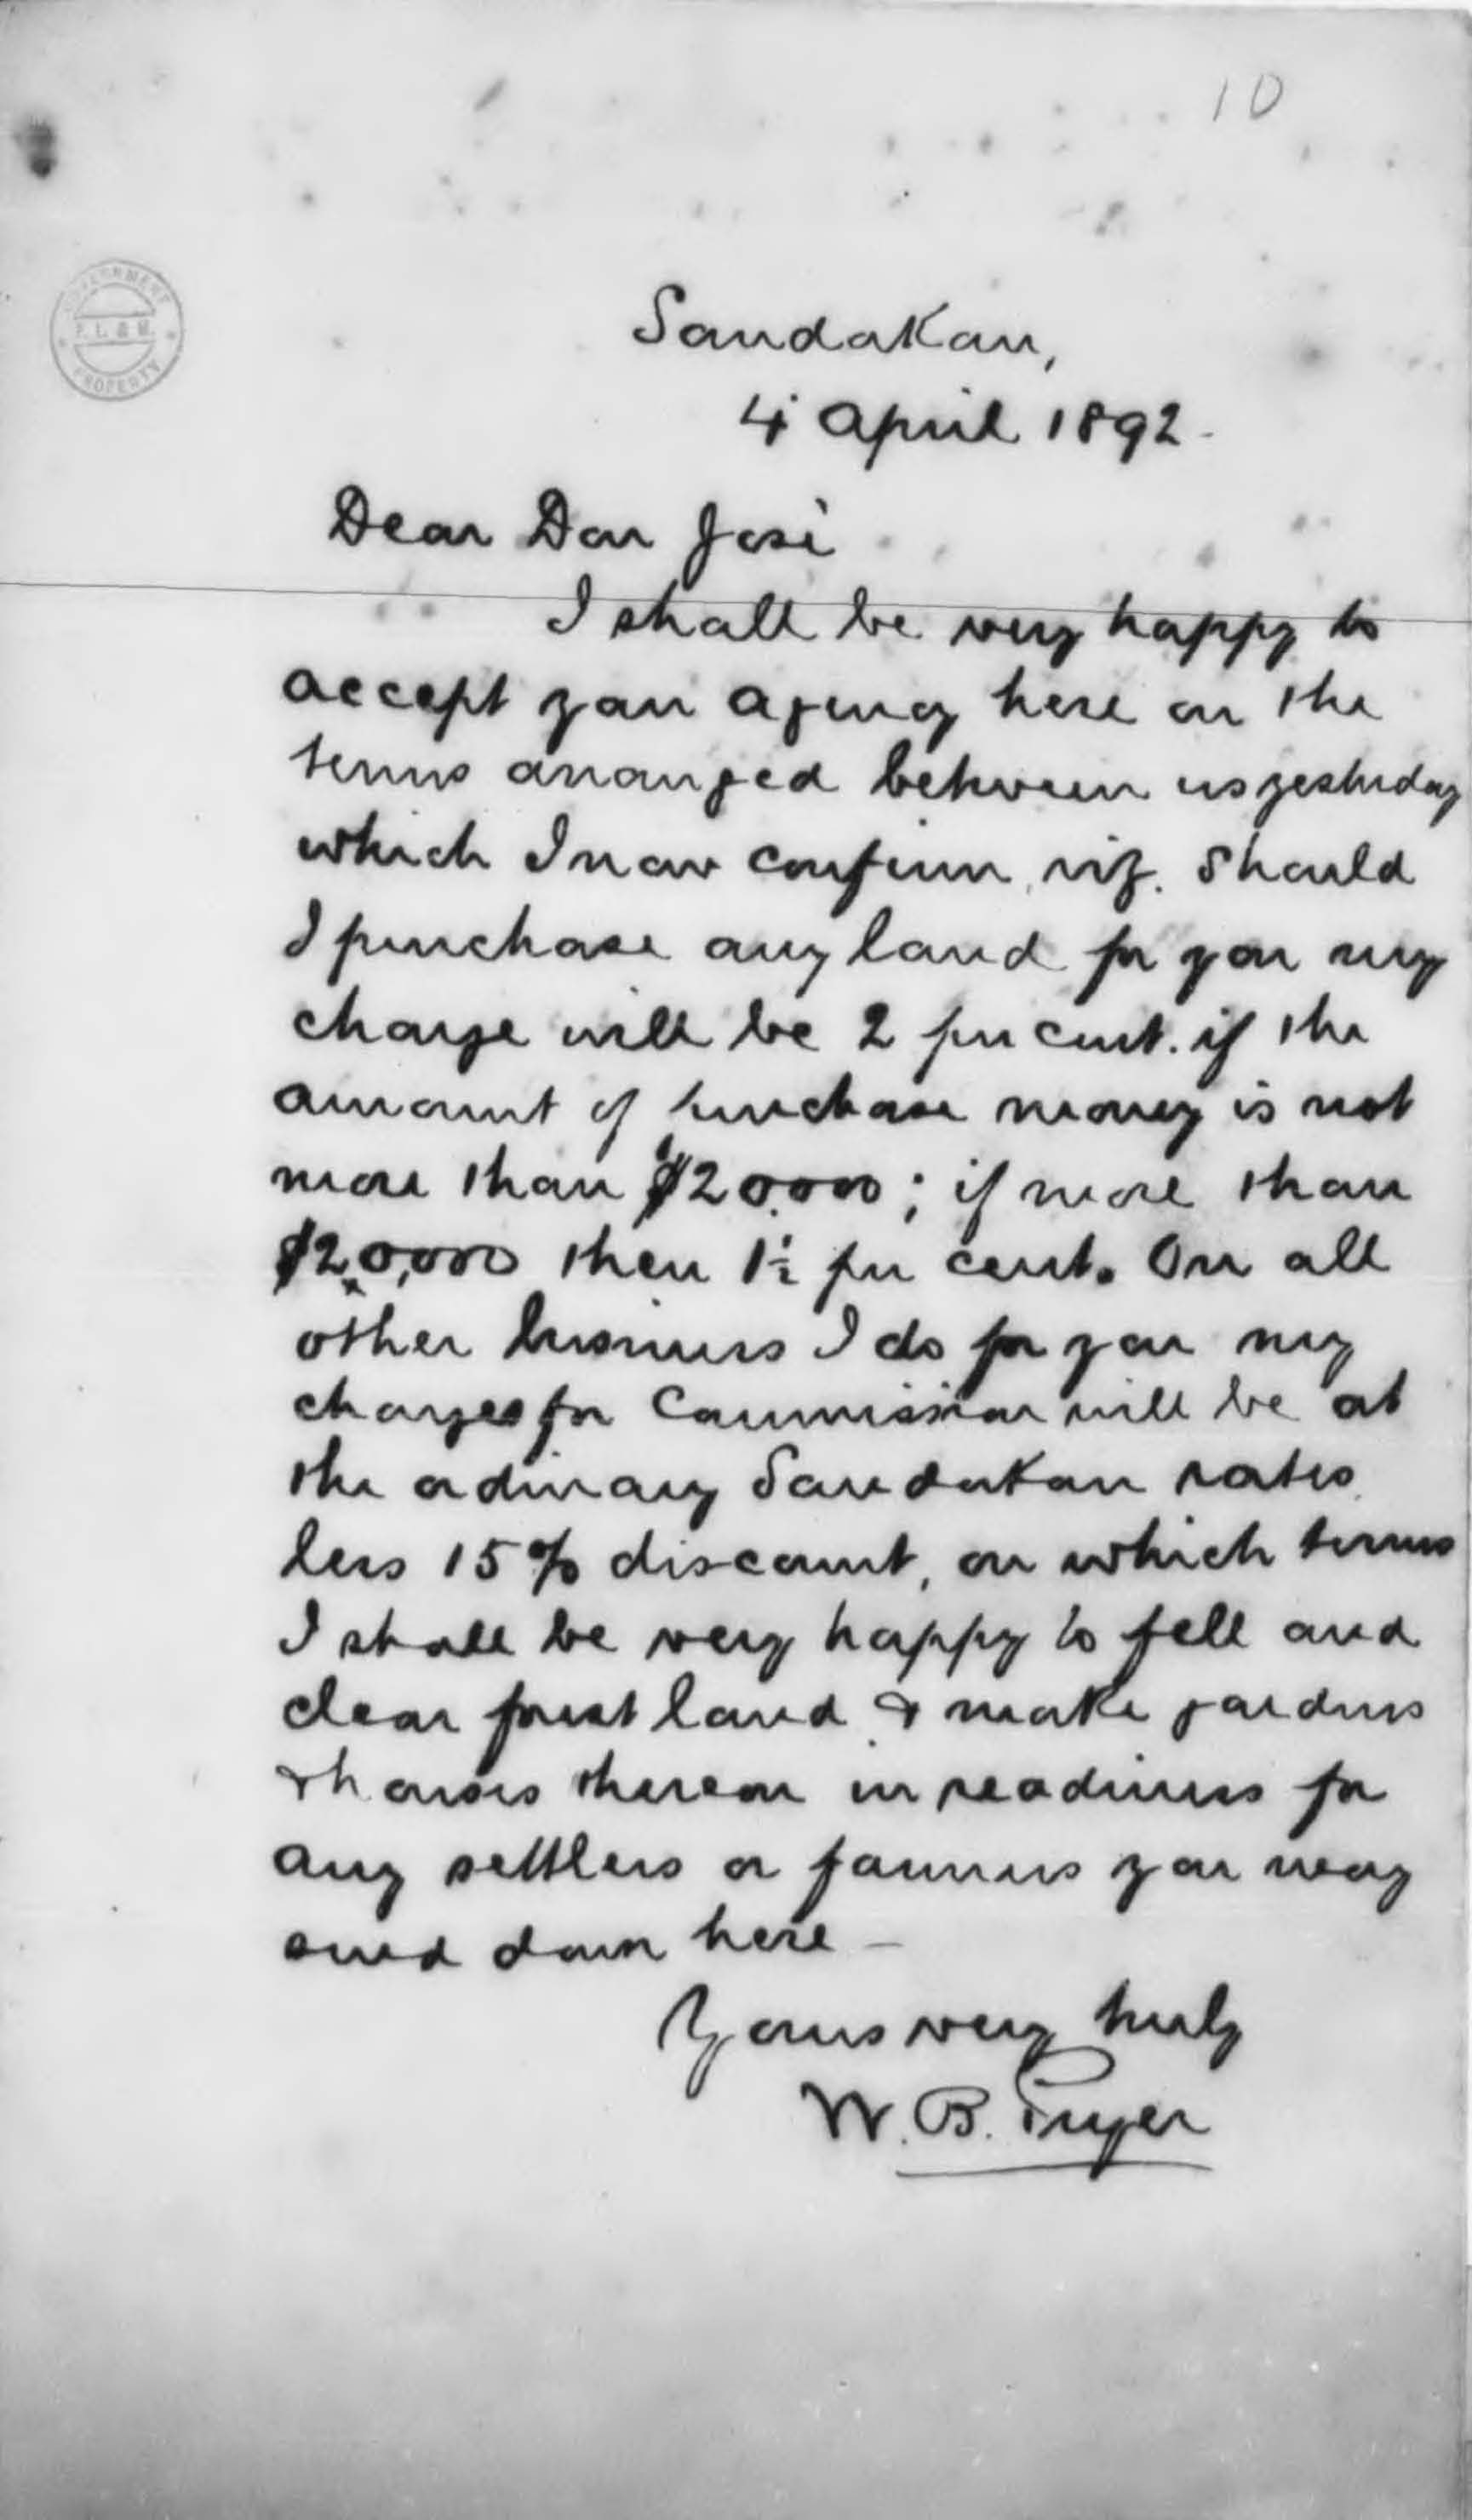 10
GOVERNMENT
P. L. & M.
PROPERTY
Sandakan,
4 April 1892.
Dear Don José
I shall be very happy to
accept your agency here on the
terms arranged between us yesterday
which I now confirm, viz. Should
I purchase any land for you my
charge will be 2 per cent. if the
amount of purchase money is not
more than $20,000; if more than
$20,000 then 1½ per cent. On all
other business I do for you my
charges for Commission will be at
the ordinary Sandakan rates
less 15% discount, on which terms
I shall be very happy to fell and
clear forest land & make gardens
& houses thereon in readiness for
any settlers or farmers you may
send down here —
Yours very truly
W. B. Pryer